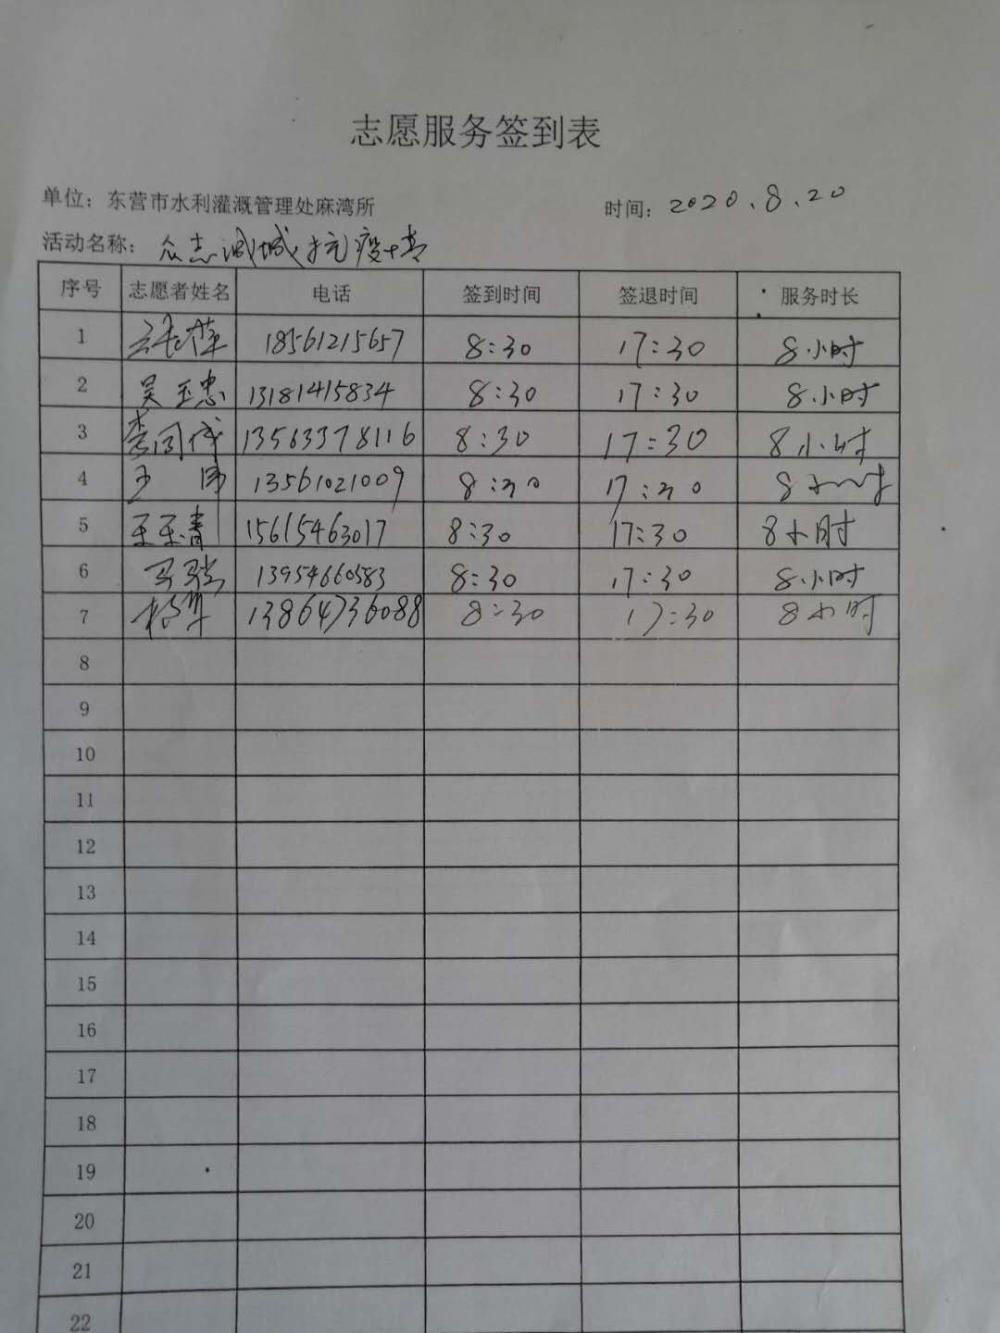 志愿服务签到表
单位：东营市水利灌溉管理处麻湾所 时间：2020.8.20
活动名称：众志成城抗疫情
序号 志愿者姓名 电话 签到时间 签退时间 服务时长
1 张萍 18561215657 8:30 17:30 8小时
2 吴玉忠 13181415834 8:30 17:30 8小时
3 13563378116 8:30 17:30 8小时
4 13561021009 8:30 17:30 8小时
5 王玉青 15615463017 8:30 17:30 8小时
6 13954660583 8:30 17:30 8小时
7 13864736088 8:30 17:30 8小时
8
9
10
11
12
13
14
15
16
17
18
19
20
21
22